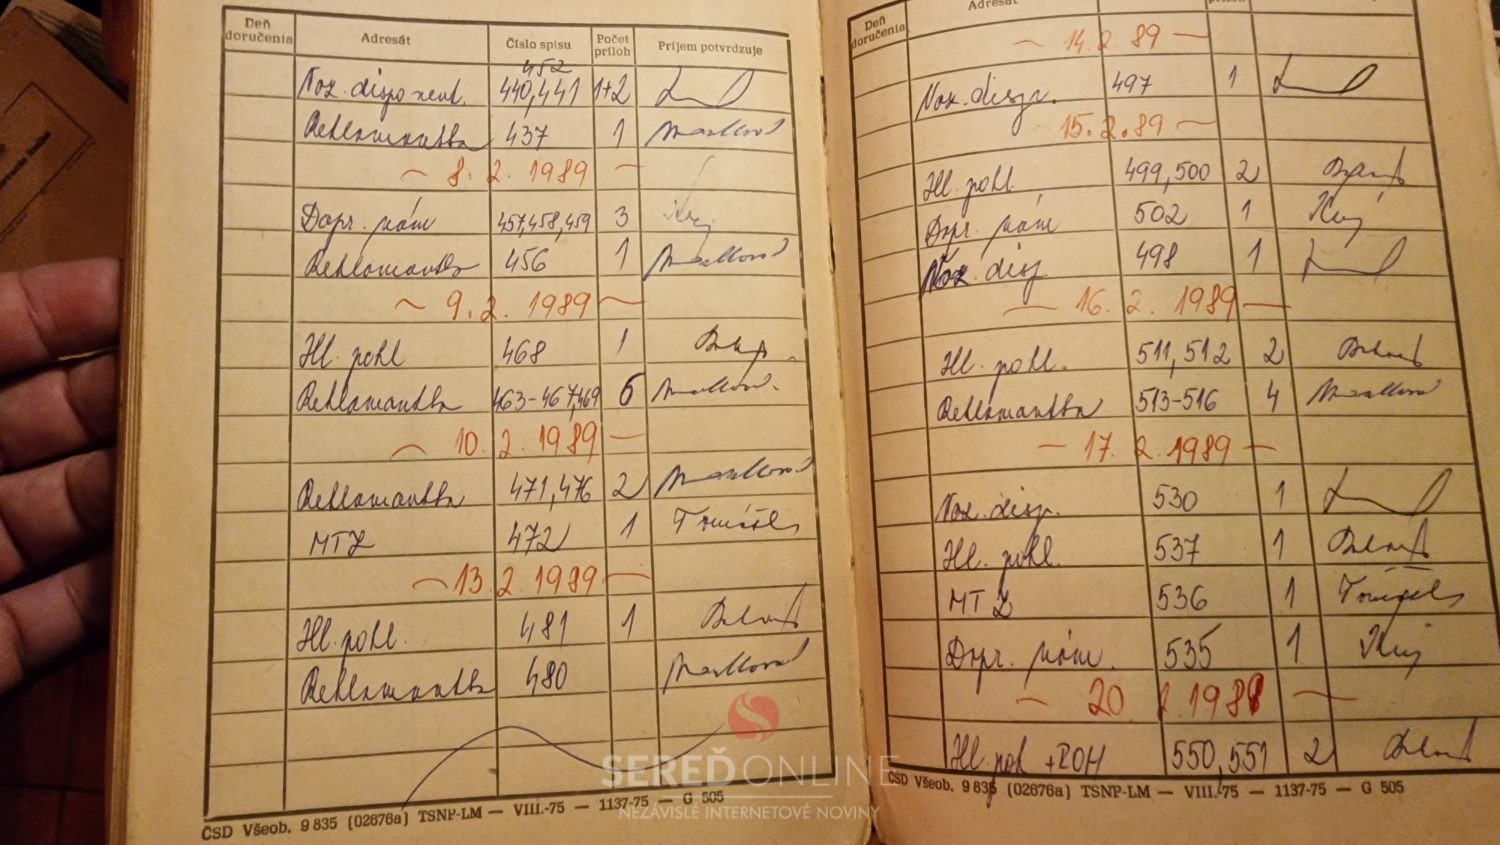 Deň doručenia Adresát Číslo spisu Počet príloh Príjem potvrdzuje
452
Voz. disponent. 440,441 1+2
Reklamantka 437 1
~ 8. 2. 1989 ~
Dopr. nám 457,458,459 3
Reklamantka 456 1
~ 9. 2. 1989 ~
Hl. pokl 468 1
Reklamantka 463-467,469 6
~ 10. 2. 1989 ~
Reklamantka 471,476 2
MTZ 472 1
~ 13. 2. 1989 ~
Hl. pokl. 481 1
Reklamantka 480
ČSD Všeob. 9 835 (02676a) TSNP-LM — VIII.-75 — 1137-75 — G 505
Deň doručenia Adresát príloh
~ 14. 2. 89 ~
Voz. disp. 497 1
~ 15. 2. 89 ~
Hl. pokl. 499,500 2
Dopr. nám 502 1
Voz. disp. 498 1
— 16. 2. 1989 —
Hl. pokl. 511, 512 2
Reklamantka 513-516 4
~ 17. 2. 1989 ~
Voz. disp. 530 1
Hl. pokl. 537 1
MTZ 536 1
Dopr. nám. 535 1
~ 20 2. 1989 ~
Hl. pok + ROH 550, 551 2
ČSD Všeob. 9 835 (02676a) TSNP-LM — VIII.-75 — 1137-75 — G 505
SEREĎONLINE
NEZÁVISLÉ INTERNETOVÉ NOVINY